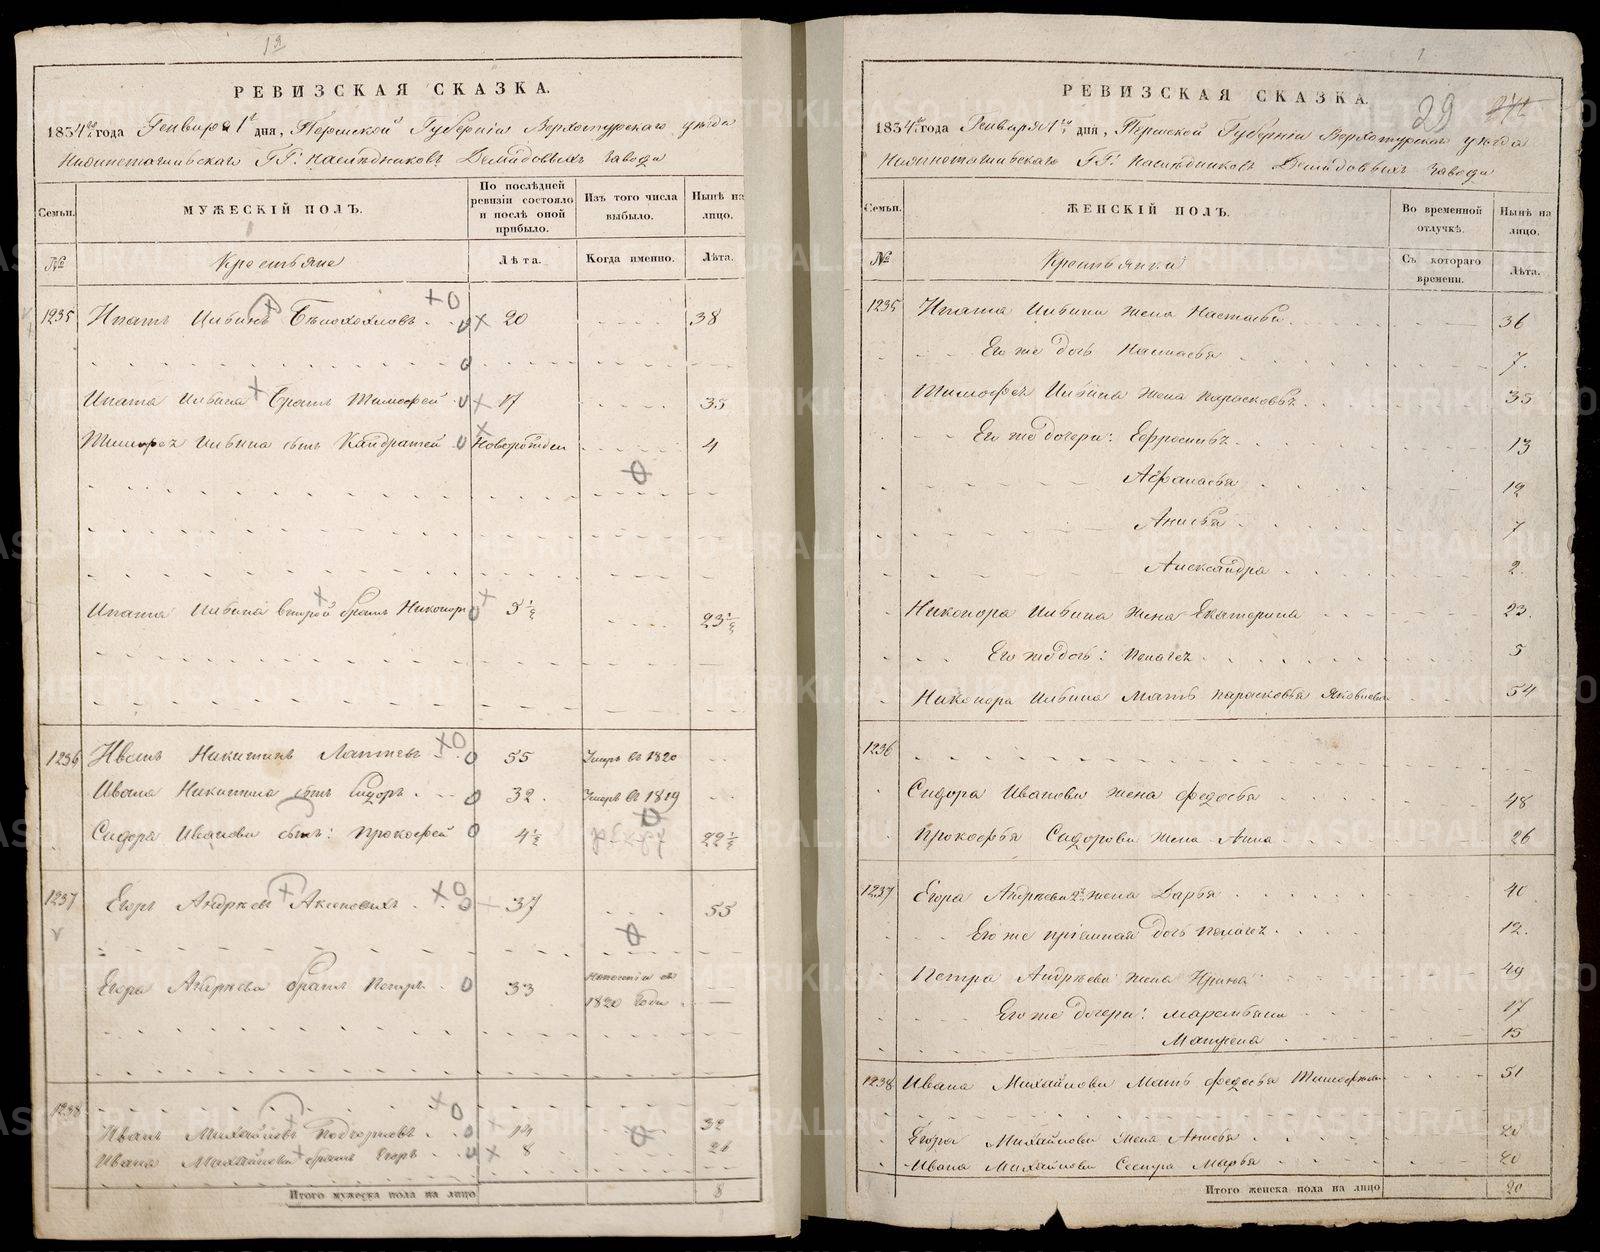 1я
РЕВИЗСКАЯ СКАЗКА.
1834го года Генваря 1 дня, Пермской Губерніи Верхотурскаго уѣзда
Нижнетагильскаго ГГ: наслѣдниковъ Демидовыхъ завода
Семьи.
МУЖЕСКІЙ ПОЛЪ.
По послѣдней ревизіи состояло и послѣ оной прибыло.
Изъ того числа выбыло.
Нынѣ на лицо.
№
Крестьяне
Лѣта.
Когда именно.
Лѣта.
1235 Ипатъ Ильинъ Бѣлохохловъ 20 38
Ипата Ильина братъ Тимофей 17 35
Тимофея Ильина сынъ Кандратей Новорожден 4
Ипата Ильина второй братъ Никонор 5½ 23½
1236 Иванъ Никитинъ Лаптевъ 55 Умеръ въ 1820
Ивана Никитина сынъ Сидоръ 32 Умеръ въ 1819
Сидора Иванова сынъ: Прокофей 4½ 22½
1237 Егоръ Андрѣевъ Аксеновихъ 37 55
Егора Андрѣева братъ Петръ 33 1820 года
1238
Иванъ Михайловъ Подгорновъ 14 32
Ивана Михайлова братъ Егоръ 8 26
Итого мужеска пола на лицо 8
29
РЕВИЗСКАЯ СКАЗКА.
1834го года Генваря 1го дня, Пермской Губерніи Верхотурскаго уѣзда
Нижнетагильскаго ГГ: наслѣдниковъ Демидовыхъ завода
Семьи.
ЖЕНСКІЙ ПОЛЪ.
Во временной отлучкѣ.
Нынѣ на лицо.
№
Крестьянки
Съ котораго времени.
Лѣта.
1235 Ипата Ильина жена Настасья 36
Его же дочь Настасья 7.
Тимофея Ильина жена Парасковья 35
Его же дочери: Ефросинья 13
Афанасья 12
Анисья 7
Александра 2.
Никонора Ильина жена Екатерина 23.
Его же дочь: Пелагея 5
Никонора Ильина мать Парасковья Яковлева 54
1236
Сидора Иванова жена Федосья 48
Прокофья Сидорова жена Анна 26
1237 Егора Андрѣева 2я жена Дарья 40
Его же пріемная дочь Пелагея 12.
Петра Андрѣева жена Ирина 49
Его же дочери: Маремьяна 17
Матрена 15
1238 Ивана Михайлова мать Федосья Тимофѣева 51
Егора Михайлова жена Анисья 20
Ивана Михайлова сестра Марья 20
Итого женска пола на лицо 20
METRIKI.GASO-URAL.RU